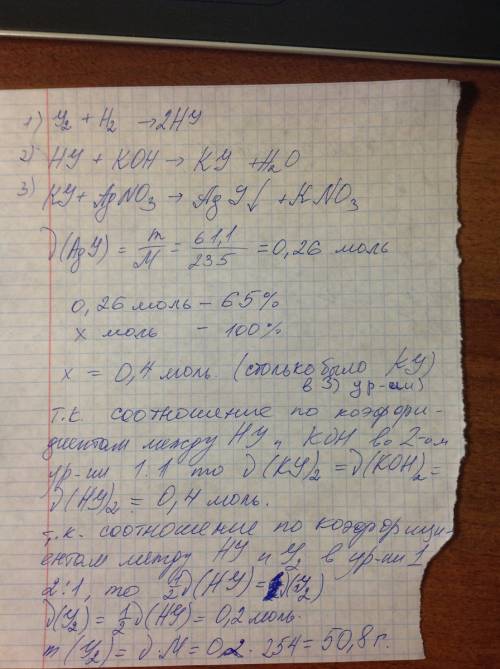 1) У₂ + H₂ → 2HУ
2) HУ + KOH → KУ + H₂O
3) KУ + AgNO₃ → AgУ↓ + KNO₃
ν(AgУ) = m/M = 61,1/235 = 0,26 моль
0,26 моль – 65%
x моль – 100%
x = 0,4 моль. (столько было KУ)
в 3) ур-ии)
т.к. соотношение по коэффи-
циентам между HУ и KOH во 2-ом
ур-ии 1:1 то ν(KУ)₂ = ν(KOH)₂ =
ν(HУ)₂ = 0,4 моль.
т.к. соотношение по коэффици-
ентам между HУ и У₂ в ур-ии 1
2:1, то ½ν(HУ) = 1ν(У₂)
ν(У₂) = ½ν(HУ) = 0,2 моль.
m(У₂) = ν·M = 0,2 · 254 = 50,8 г.